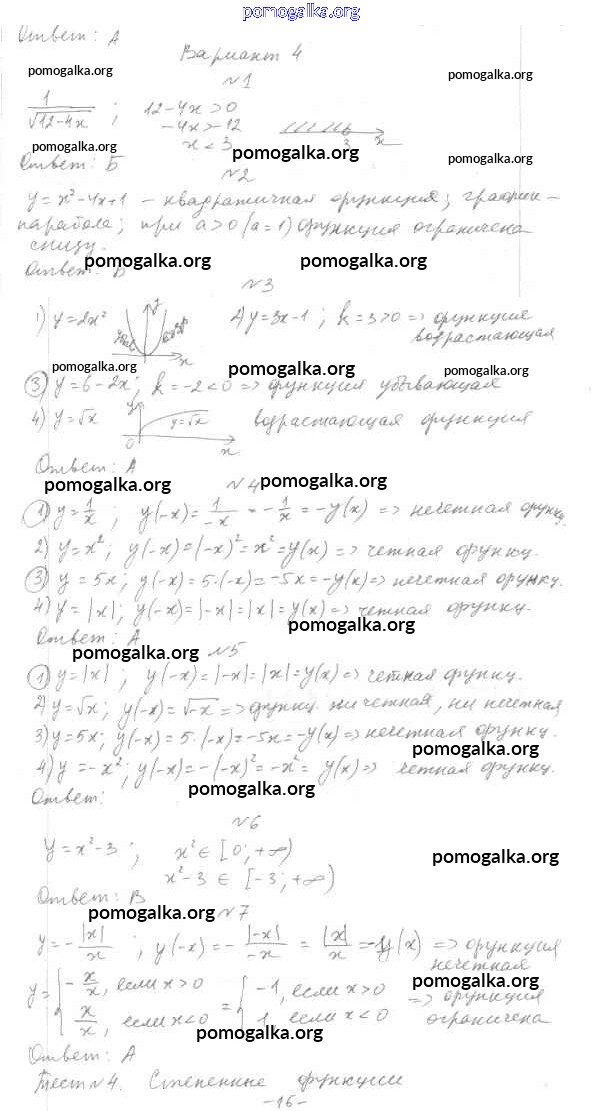 pomogalka.org
Ответ: А
Вариант 4
pomogalka.org pomogalka.org
№1
1/√(12-4x) ; 12-4x>0
-4x>-12
x<3 3 x
pomogalka.org pomogalka.org
pomogalka.org
Ответ: Б
№2
y=x²-4x+1 – квадратичная функция; график –
парабола; при a>0 (a=1) функция ограничена
снизу.
Ответ: Б
pomogalka.org pomogalka.org
№3
1) y=2x² y x 2) y=3x-1 ; k=3>0 => функция
возрастающая
pomogalka.org pomogalka.org pomogalka.org
3) y=6-2x; k=-2<0 => функция убывающая
4) y=√x y y=√x 0 x возрастающая функция
Ответ: А
pomogalka.org pomogalka.org
№4
1) y=1/x ; y(-x)=1/-x = -1/x = -y(x) => нечетная функц.
2) y=x²; y(-x)=(-x)²=x²=y(x) => четная функц.
3) y=5x; y(-x)=5·(-x)=-5x=-y(x)=> нечетная функц.
4) y=|x|; y(-x)=|-x|=|x|=y(x)=> четная функц.
pomogalka.org
Ответ: А
pomogalka.org
№5
1) y=|x| ; y(-x)=|-x|=|x|=y(x)=> четная функц.
2) y=√x; y(-x)=√-x => функц. ни четная, ни нечетная
3) y=5x; y(-x)=5·(-x)=-5x=-y(x)=> нечетная функц.
pomogalka.org
4) y=-x²; y(-x)=-(-x)²=-x²= y(x)=> четная функц.
pomogalka.org
Ответ:
№6
y=x²-3 ; x²∈[0;+∞)
x²-3 ∈ [-3;+∞)
pomogalka.org
Ответ: В
pomogalka.org
№7
y=-|x|/x ; y(-x)=-|-x|/-x = |x|/x =-y(x) => функция
нечетная
y={ -x/x, если x>0 = { -1, если x>0 => функция
x/x, если x<0 1, если x<0 ограничена
pomogalka.org
pomogalka.org
Ответ: А
Тест №4. Степенные функции
-16-